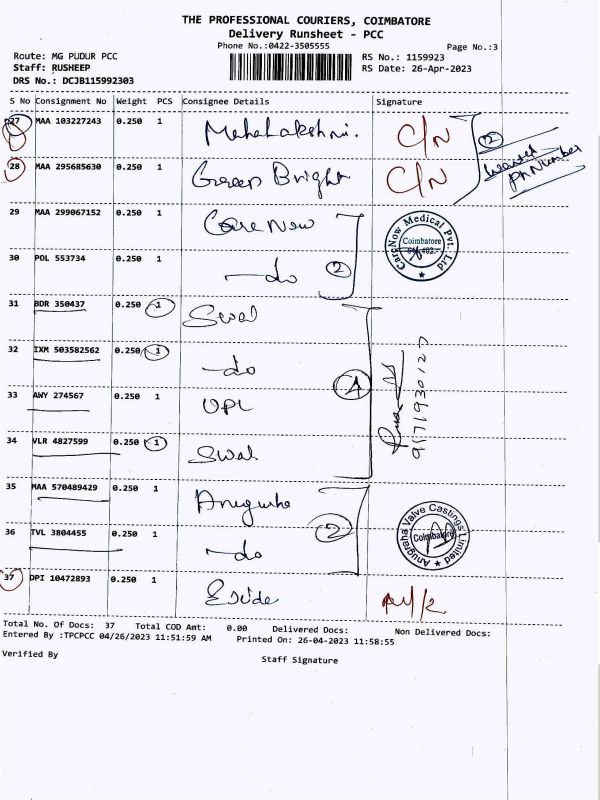 THE PROFESSIONAL COURIERS, COIMBATORE
Delivery Runsheet - PCC
Phone No.:0422-3505555
Page No.:3
Route: MG PUDUR PCC
RS No.: 1159923
Staff: RUSHEEP
RS Date: 26-Apr-2023
DRS No.: DCJB115992303
S No Consignment No Weight PCS Consignee Details Signature
27 MAA 103227243 0.250 1 Mahalakshmi. C/N
12 Wanted Ph Number
28 MAA 295685630 0.250 1 Green Bright C/N
29 MAA 299067152 0.250 1 Care Now
CareNow Medical Pvt. Ltd Coimbatore
30 POL 553734 0.250 1 do 2
31 BDR 350437 0.250 1 Swal
32 IXM 503582562 0.250 1 do
33 AWY 274567 0.250 1 UPL
4
34 VLR 4827599 0.250 1 Swal
35 MAA 570489429 0.250 1 Anugraha
2
Anugraha Valve Castings Limited Coimbatore
36 TVL 3804455 0.250 1 do
37 DPI 10472893 0.250 1 Exide
Total No. Of Docs: 37 Total COD Amt: 0.00 Delivered Docs: Non Delivered Docs:
Entered By :TPCPCC 04/26/2023 11:51:59 AM Printed On: 26-04-2023 11:58:55
Verified By
Staff Signature